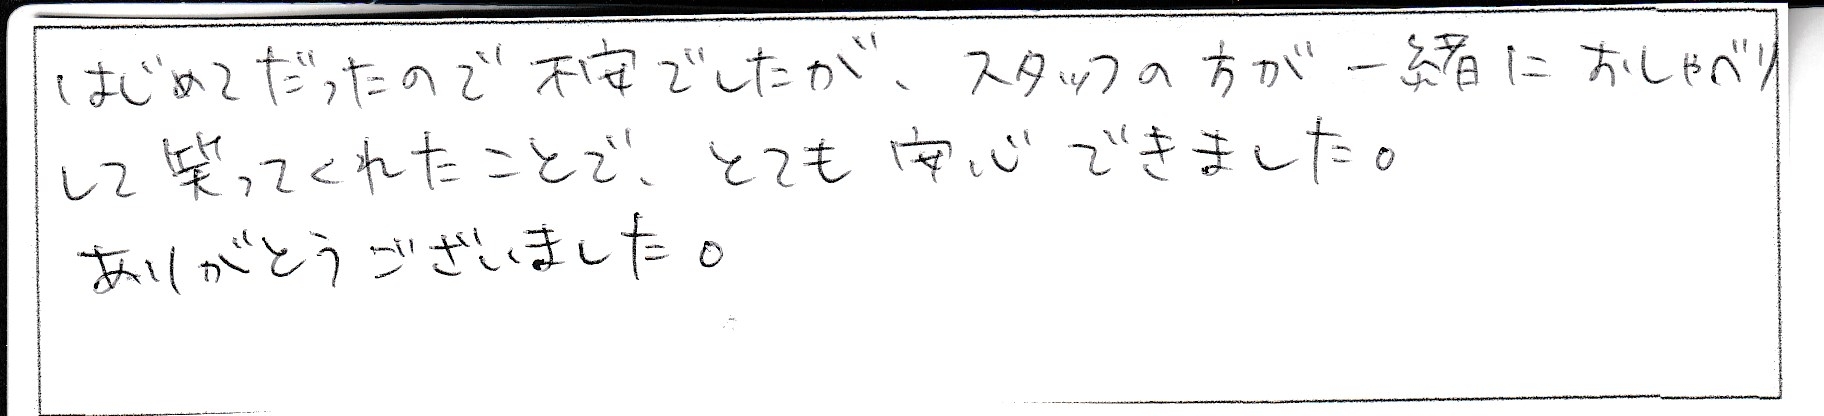 はじめてだったので不安でしたが、スタッフの方が一緒におしゃべり
して笑ってくれたことで、とても安心できました。
ありがとうございました。